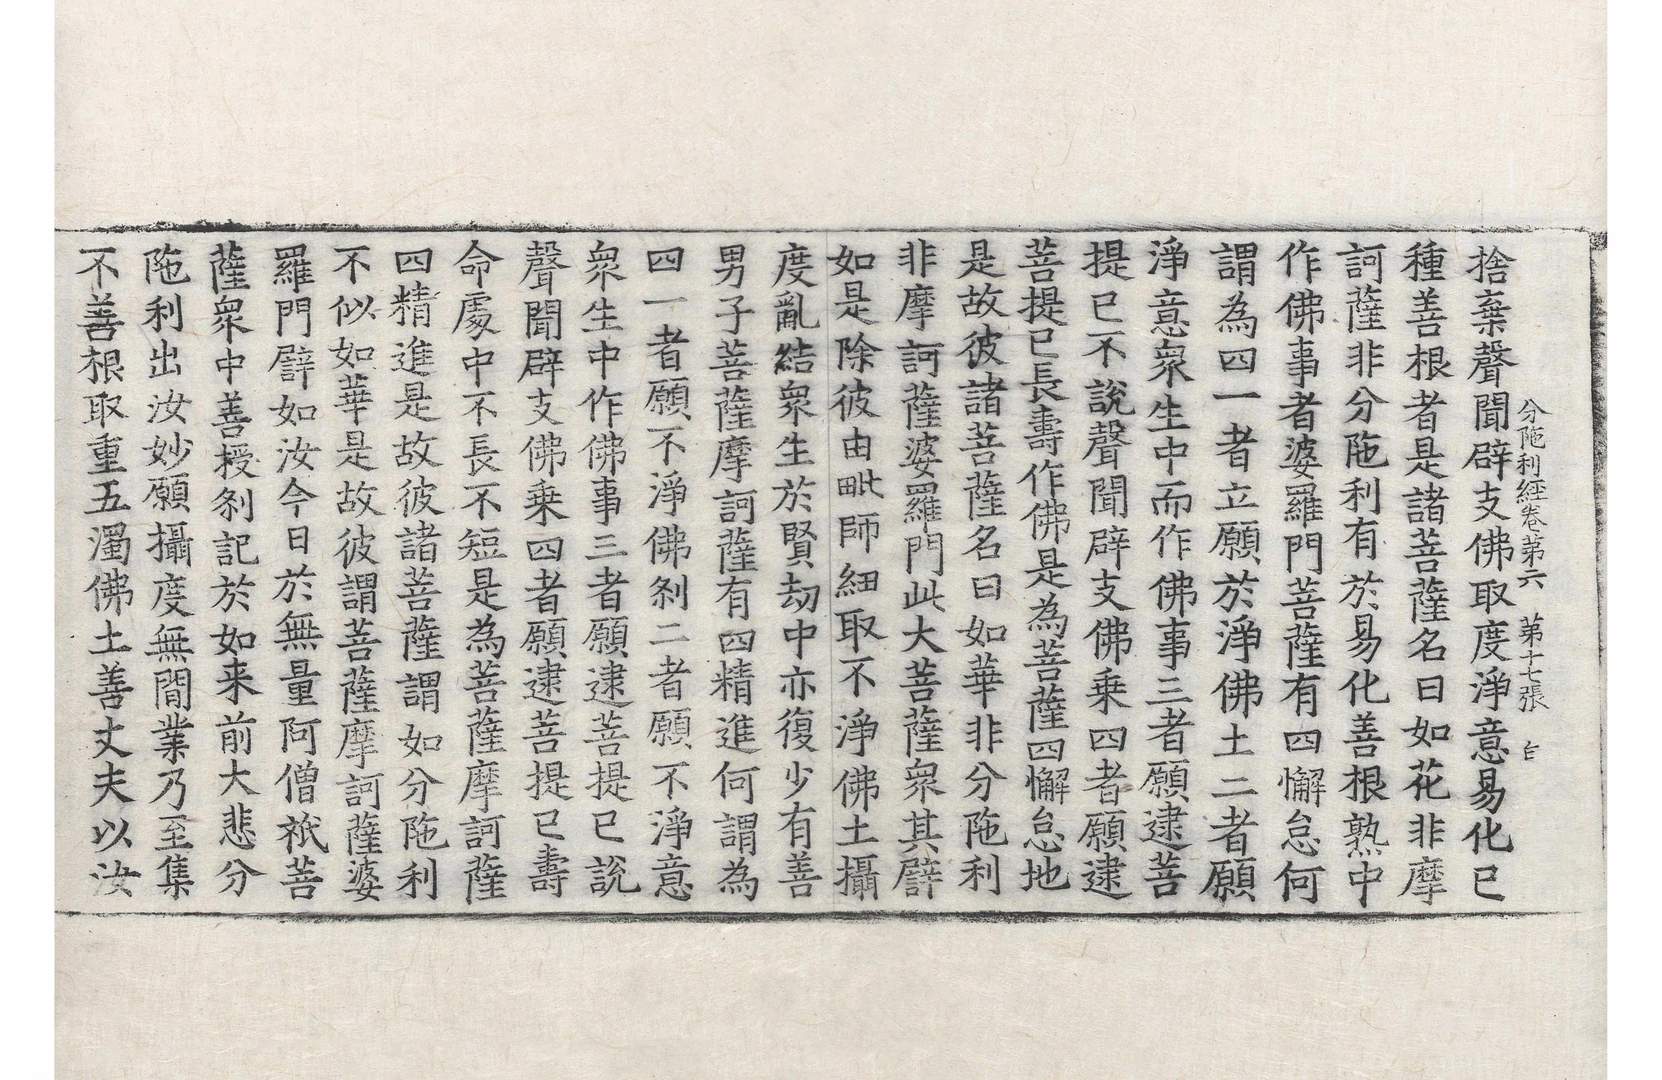 分陁利經卷第六　第十七張
捨棄聲聞辟支佛取度淨意易化已
種善根者是諸菩薩名曰如花非摩
訶薩非分陁利有於易化善根熟中
作佛事者婆羅門菩薩有四懈怠何
謂為四一者立願於淨佛土二者願
淨意衆生中而作佛事三者願逮菩
提已不說聲聞辟支佛乘四者願逮
菩提已長壽作佛是為菩薩四懈怠地
是故彼諸菩薩名曰如華非分陁利
非摩訶薩婆羅門此大菩薩衆其譬
如是除彼由毗師紐取不淨佛土攝
度亂結衆生於賢劫中亦復少有善
男子菩薩摩訶薩有四精進何謂為
四一者願不淨佛刹二者願不淨意
衆生中作佛事三者願逮菩提已說
聲聞辟支佛乘四者願逮菩提已壽
命處中不長不短是為菩薩摩訶薩
四精進是故彼諸菩薩謂如分陁利
不似如華是故彼謂菩薩摩訶薩婆
羅門譬如汝今日於無量阿僧祇菩
薩衆中善授刹記於如来前大悲分
陁利出汝妙願攝度無間業乃至集
不善根取重五濁佛土善丈夫以汝